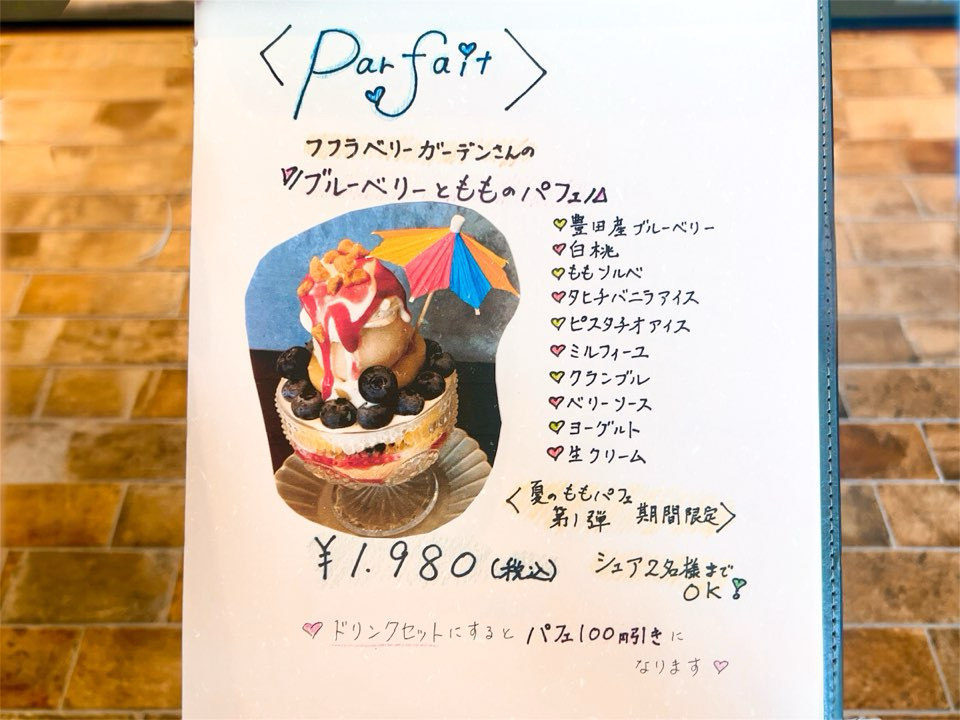 〈Parfait〉
フフラベリーガーデンさんの
ブルーベリーともものパフェ
豊田産ブルーベリー
白桃
ももソルベ
タヒチバニラアイス
ピスタチオアイス
ミルフィーユ
クランブル
ベリーソース
ヨーグルト
生クリーム
〈夏のももパフェ
第1弾 期間限定〉
¥1.980(税込)
シェア2名様まで
OK!
ドリンクセットにするとパフェ100円引きに
なります♡